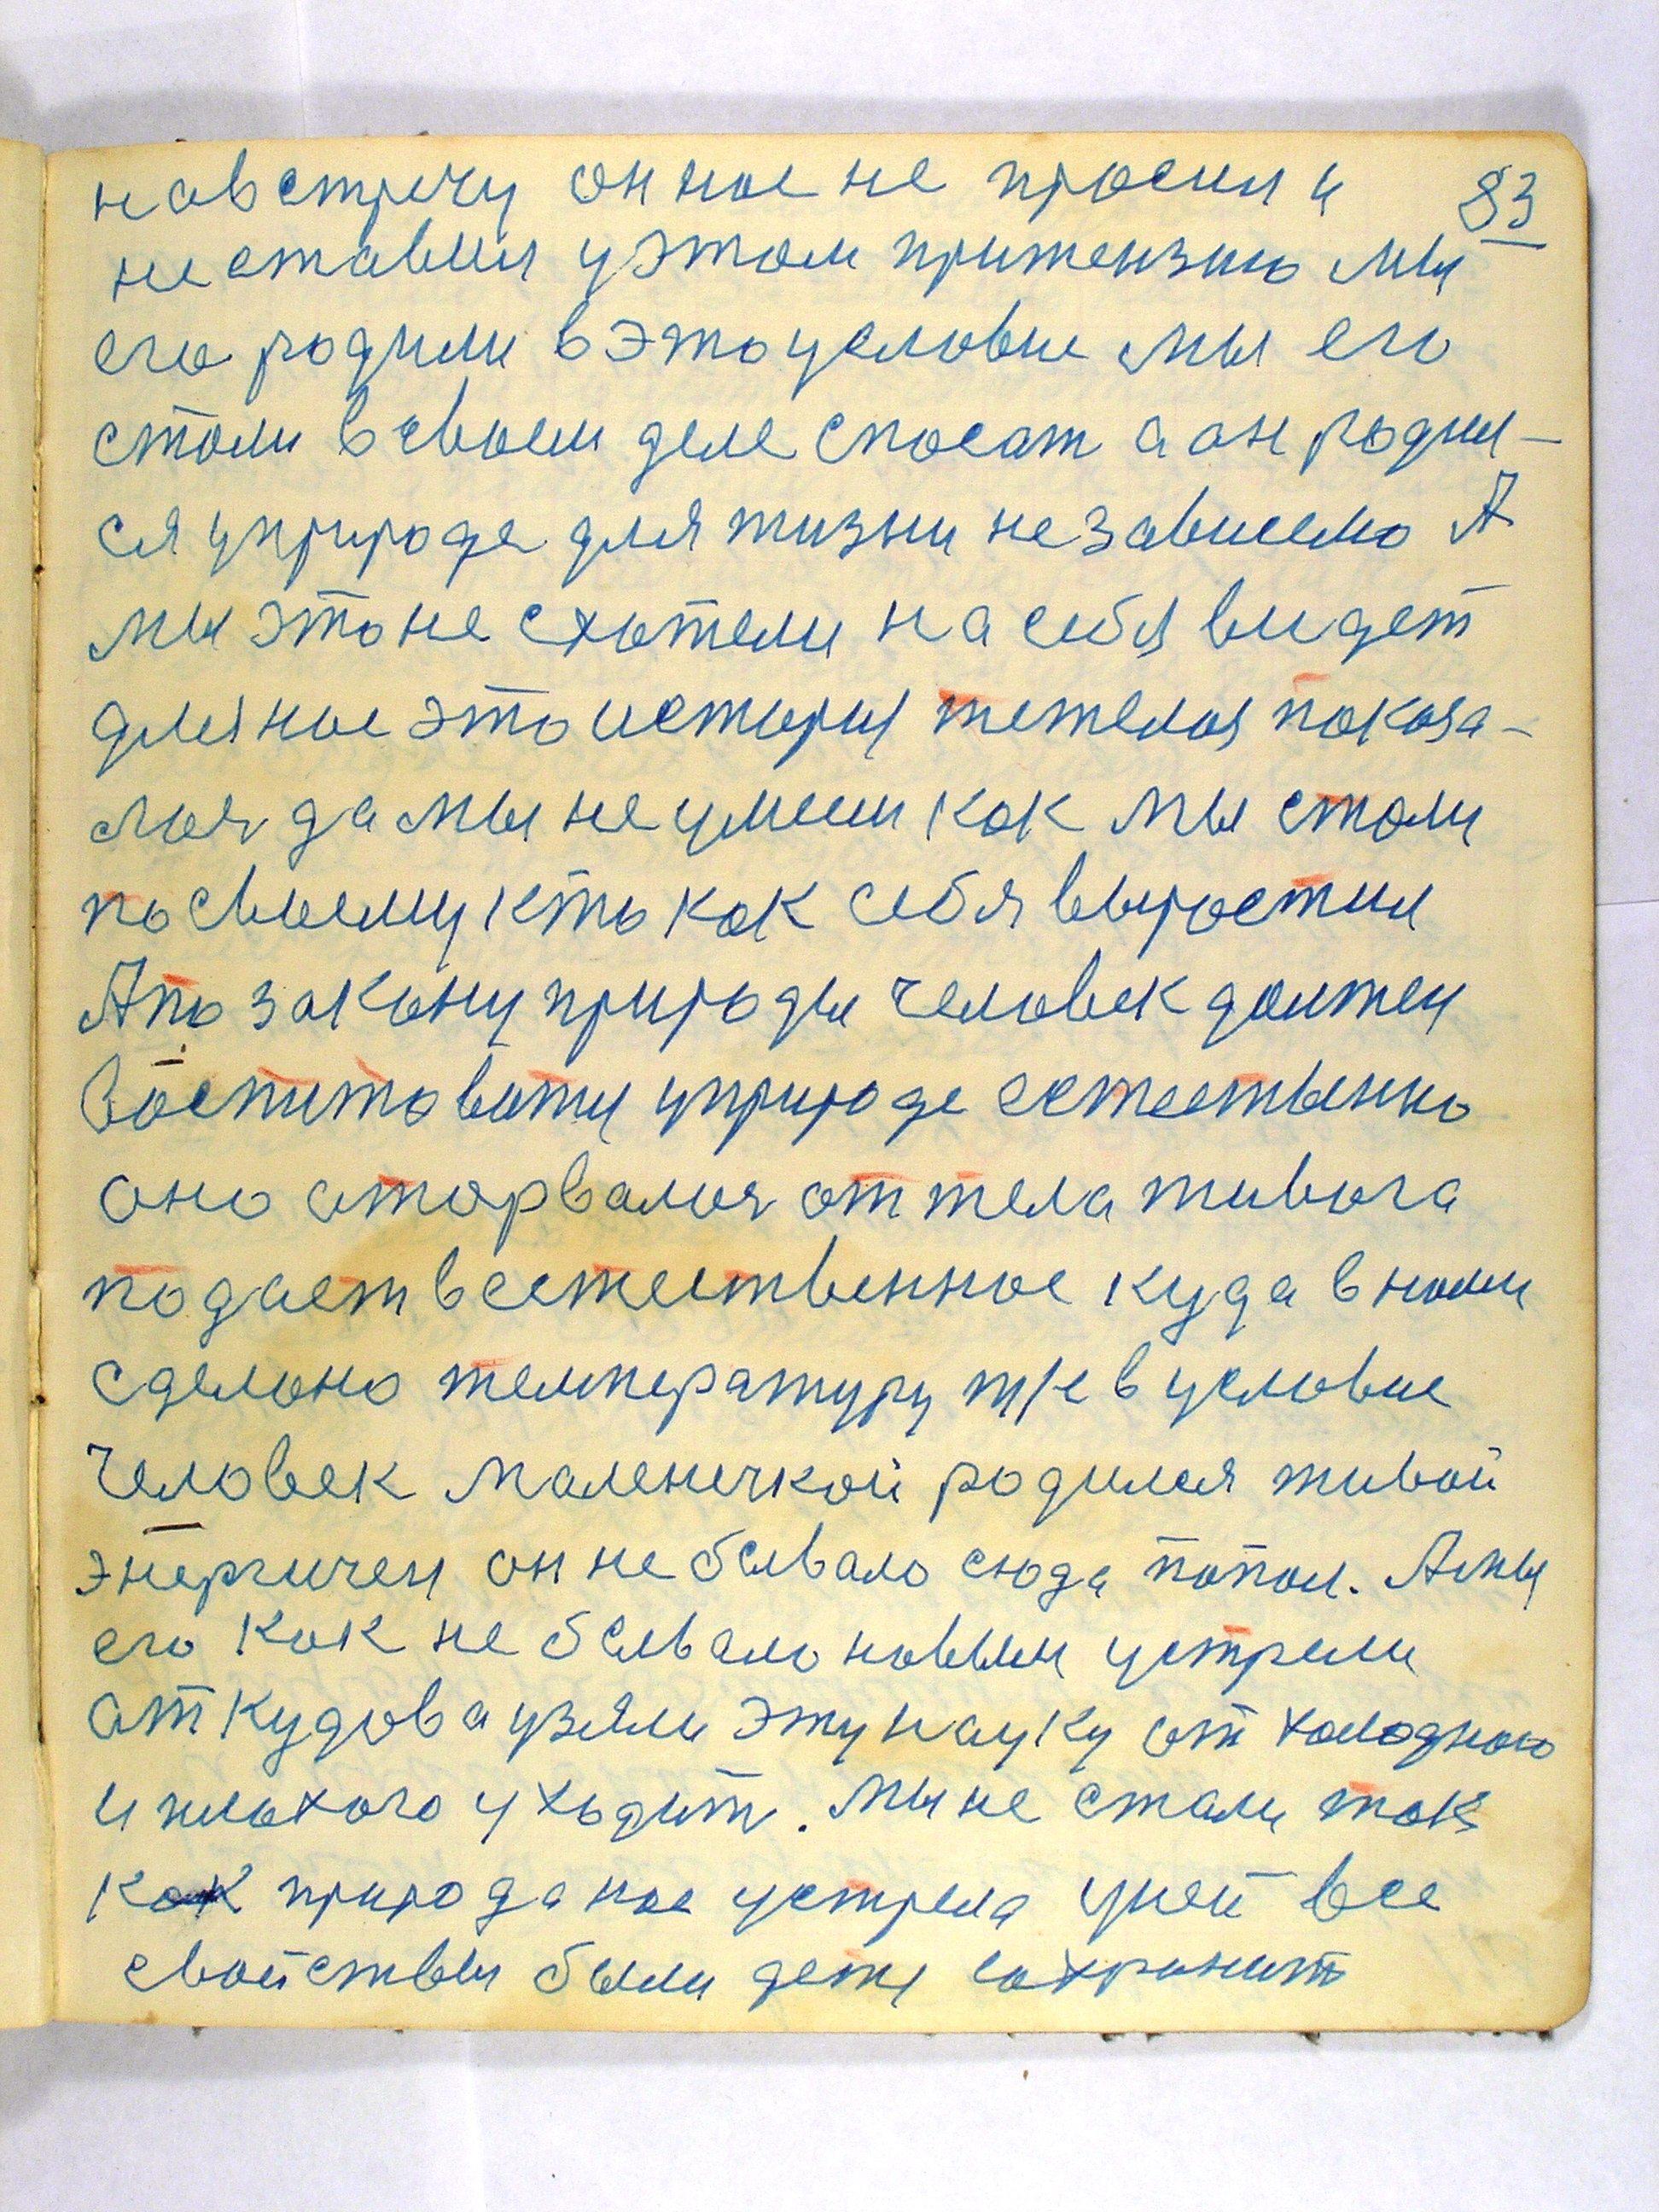 навстречу он нас не просил и 83
не ставил у этом притензию мы
его родили в это условие мы его
стали в своем деле спосат а он родил-
ся у природе для жизни не зависемо А
мы это не схотели на себя видет
для нас это история тежелая показа-
лася да мы не умели как мы стали
по своему кто как себя выростил
А по закону природы человек должен
воспитоватц у природе естественно
оно аторвалося от тела живога
подает в естественное куда в ноли
сделано температуру т/е в условие
человек маленечкой родился живой
энергичен он не бывало сюда попал. А мы
его как не бывало новым устрели
от кудова узяли эту науку от холодного
и плохого уходит. Мы не стали так
как природа нас устрела у ней все
свойствы были детя сохранит